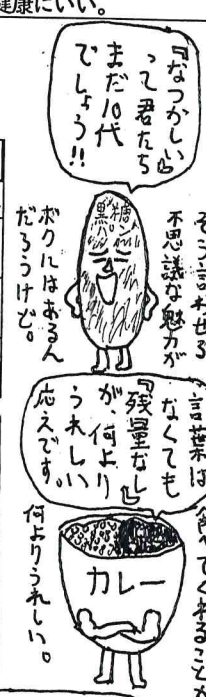 健康にいい。
『なつかしい』
って君たち
まだ10代
でしょう!!
黒糖パン
そう言わせる
不思議な魅力が
ボクにはあるん
だろうけど。
言葉は
なくても
『残量なし』
が、何より
うれしい
応えです。
食べてくれることが
何よりうれしい。
カレー